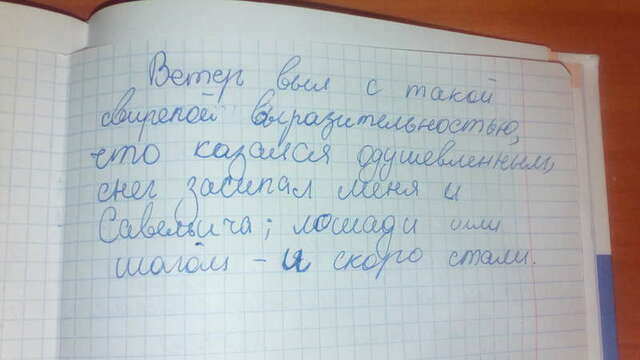 Ветер выл с такой
свирепой выразительностью,
что казался одушевленным,
снег засыпал меня и
Савельича; лошади шли
шагом - и скоро стали.